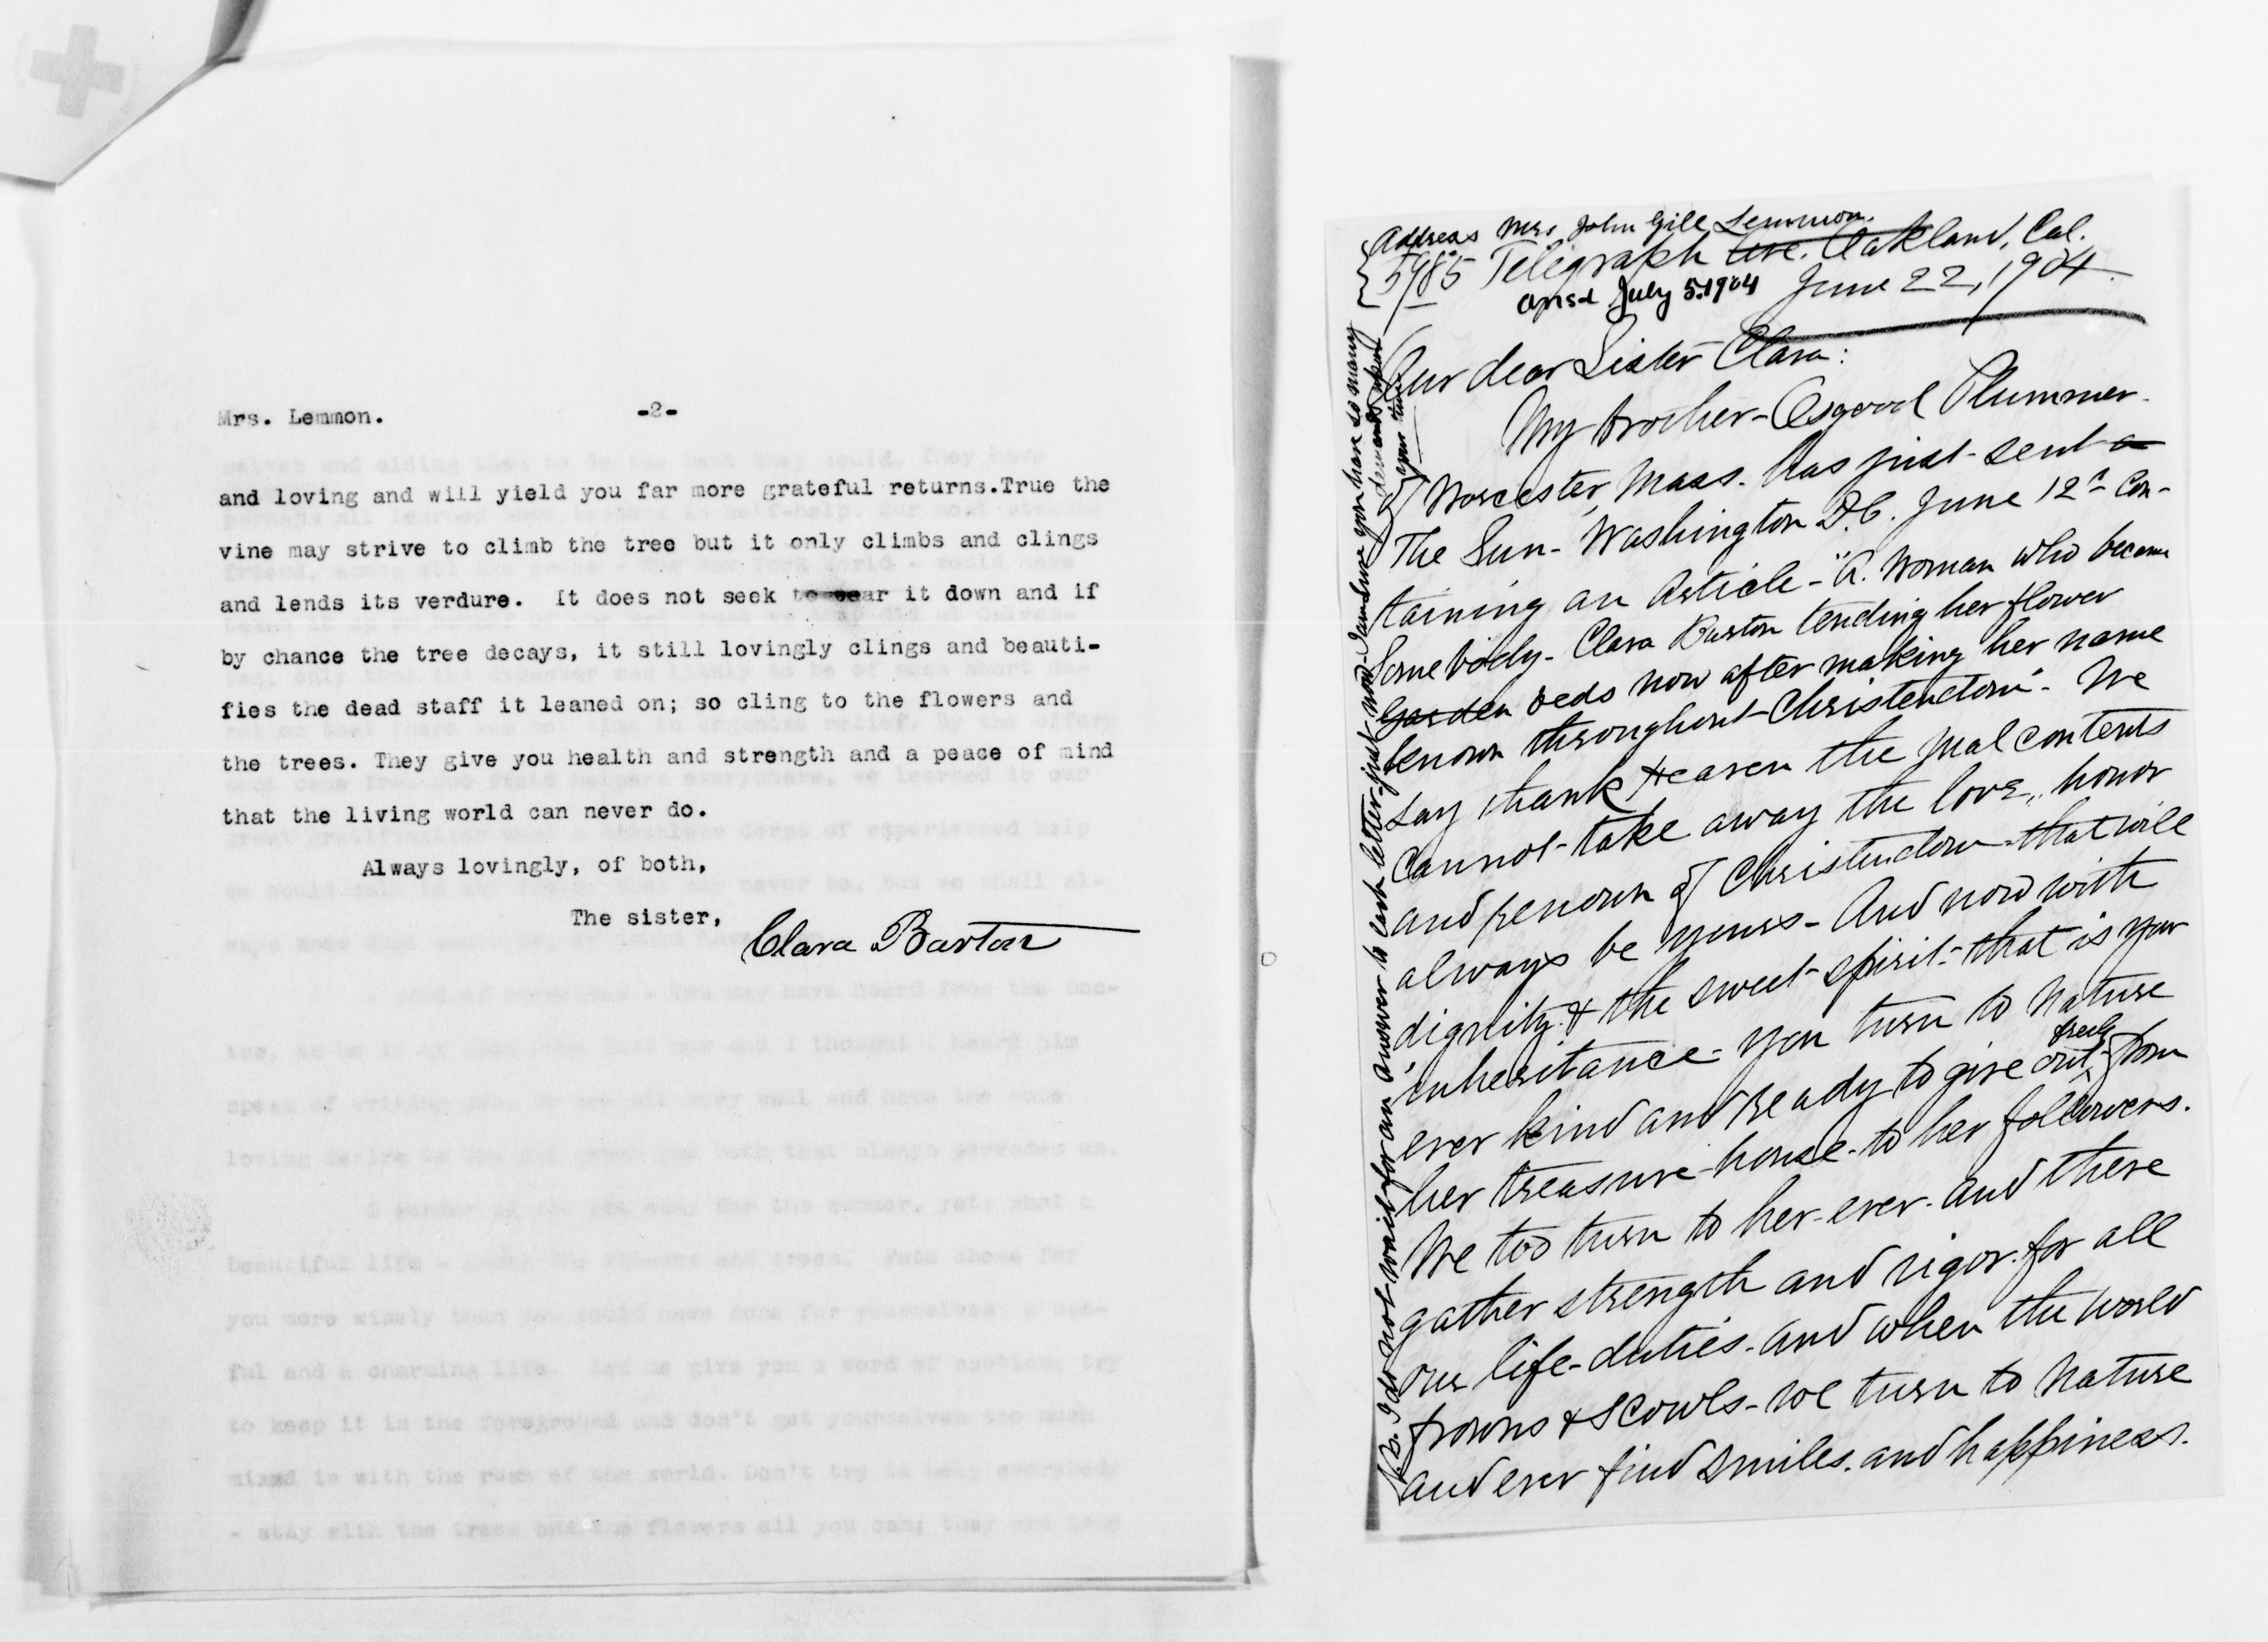 Mrs. Lemmon. -2-
and loving and will yield you far more grateful returns.True the
vine may strive to climb the tree but it only climbs and clings
and lends its verdure. It does not seek to tear it down and if
by chance the tree decays, it still lovingly clings and beauti-
fies the dead staff it leaned on; so cling to the flowers and
the trees. They give you health and strength and a peace of mind
that the living world can never do.
Always lovingly, of both,
The sister,
Clara Barton
Address Mrs John Gill Lemmon.
5985 Telegraph Ave. Oakland, Cal.
ansd July 5.1904 June 22, 1904
Our dear Sister Clara:
My brother - Osgood Plummer -
of Worcester, Mass. has just - sent a
The Sun - Washington D.C. June 12th Con-
taining an Article - "A. Woman who became
Somebody - Clara Barton tending her flower
garden beds now after making her name
known throughout Christendom". We
say thank Heaven the malcontents
cannot - take away the love, honor
and renown of Christendom - that will
always be yours - And now with
dignity & the sweet - spirit - that is your
inheritance - you turn to Nature
ever kind and ready to give out freely from
her treasure - house - to her followers.
We too turn to her - ever - and there
gather strength and vigor for all
our life - duties - and when the world
frowns & scowls - we turn to Nature
and ever find smiles, and happiness.
N.B. I do not - wait - for an answer to each letter - just now - I am sure you have so many
demands upon
your time